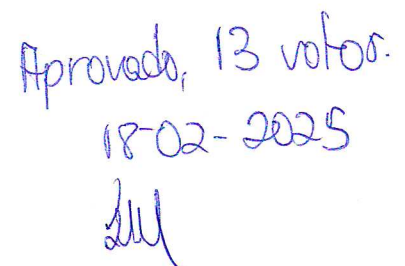 Aprovado, 13 votos.
18-02-2025